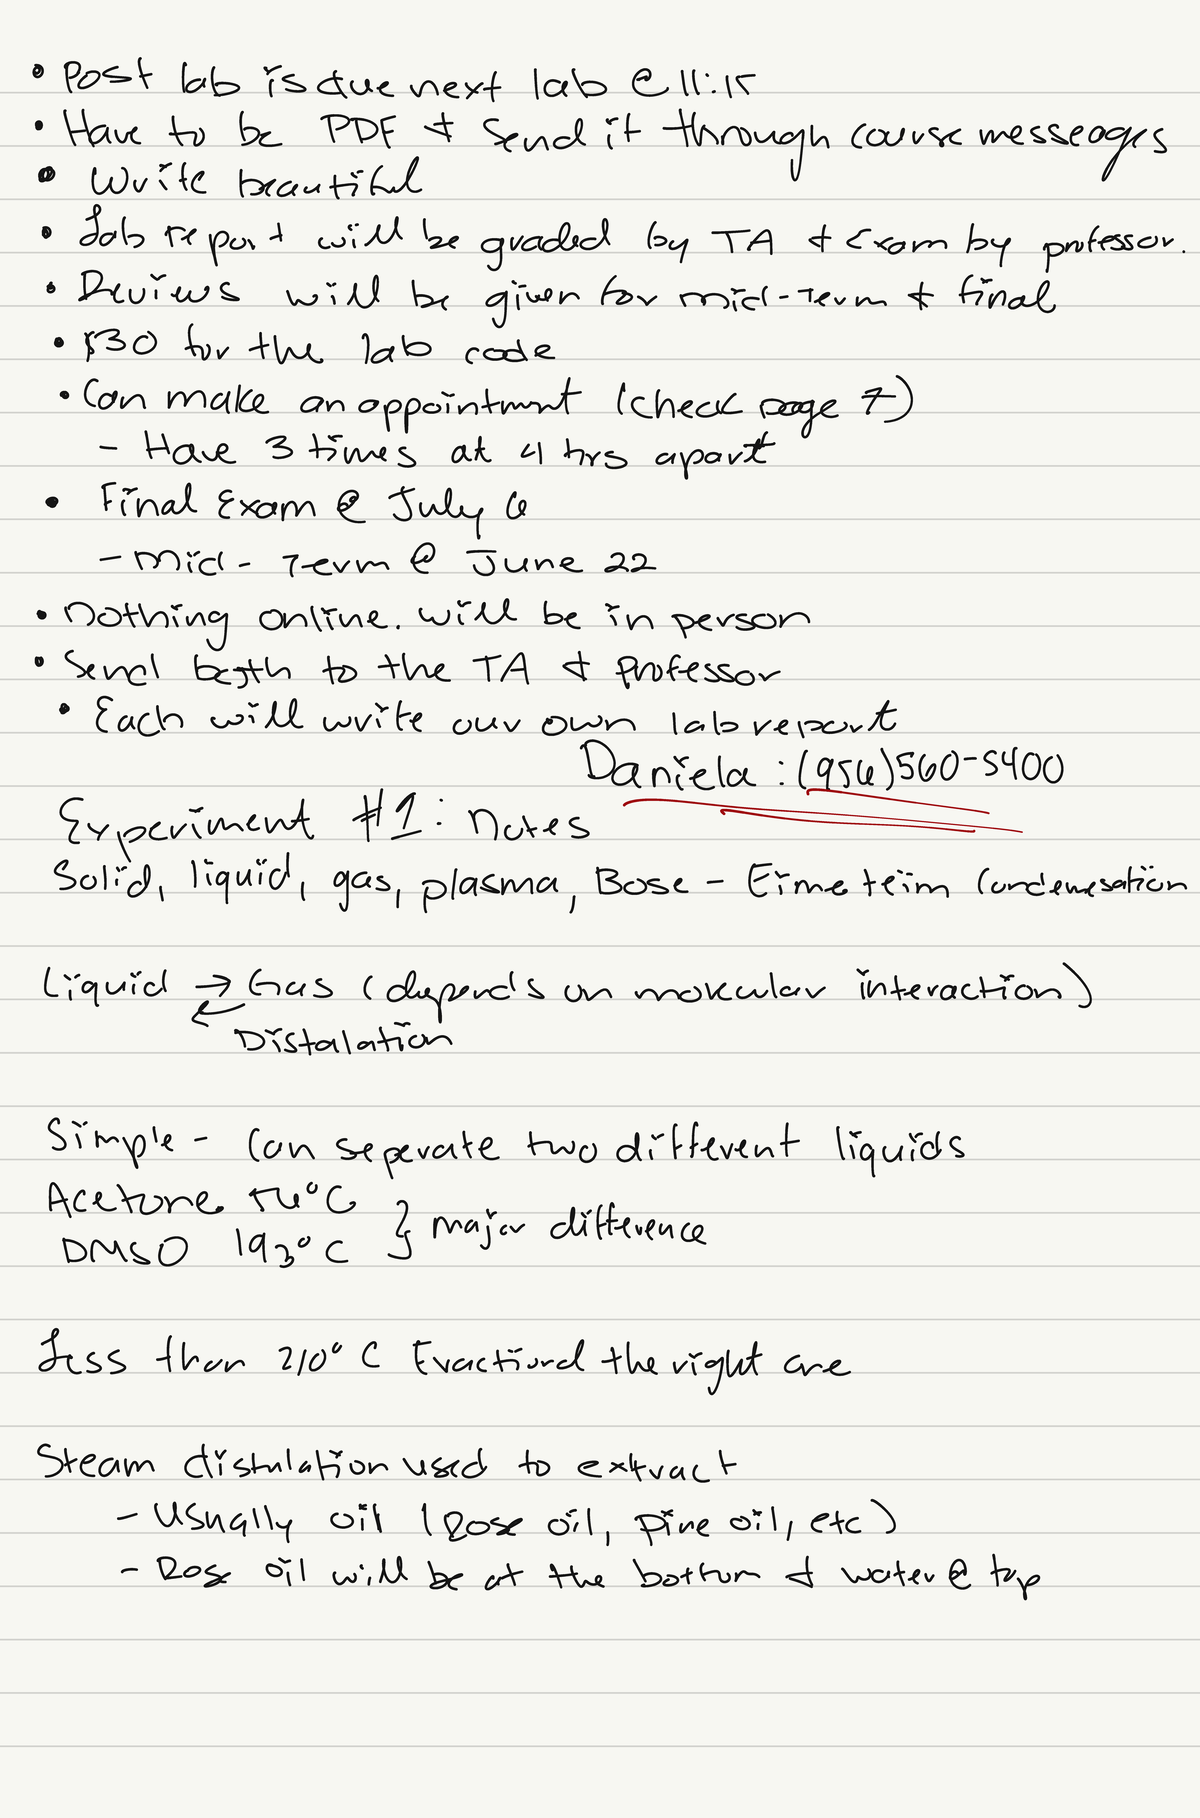 • Post lab is due next lab @ 11:15
• Have to be PDF & Send it through course messeages
• Write beautiful
• Lab report will be graded by TA & Exam by professor.
• Reviews will be given for mid-Term & final
• $30 for the lab code
• Can make an appointment (check page 7)
- Have 3 times at 4 hrs apart
• Final Exam @ July 6
- Mid-Term @ June 22
• Nothing online. will be in person
• Send both to the TA & professor
• Each will write our own lab report
Daniela : (956) 560-5400
Experiment #1: Notes
Solid, liquid, gas, plasma, Bose - Eimeteim Condemesation
Liquid → Gas (depends on molecular interaction)
← Distalation
Simple - Can seperate two different liquids
Acetone 56°C
DMSO 193°C } major difference
Less than 210° C the right are
Steam distulation used to extract
- Usually oil (Rose oil, pine oil, etc)
- Rose oil will be at the bottom & water @ top